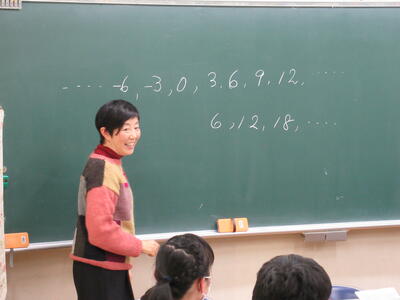 ..... -6, -3, 0, 3, 6, 9, 12, .....
6, 12, 18, .....